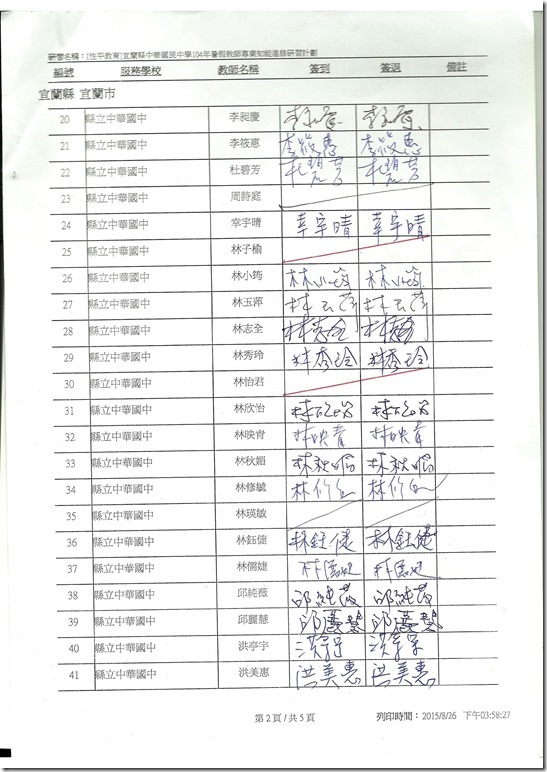 研習名稱：[性平教育]宜蘭縣中華國民中學104年暑假教師專業知能進修研習計劃
編號 服務學校 教師名稱 簽到 簽退 備註
宜蘭縣 宜蘭市
20 縣立中華國中 李昶慶
21 縣立中華國中 李筱惠 李筱惠 李筱惠
22 縣立中華國中 杜碧芳 杜碧芳 杜碧芳
23 縣立中華國中 周詩庭
24 縣立中華國中 幸宇晴 幸宇晴 幸宇晴
25 縣立中華國中 林子榆
26 縣立中華國中 林小筠 林小筠 林小筠
27 縣立中華國中 林玉萍 林玉萍 林玉萍
28 縣立中華國中 林志全 林志全
29 縣立中華國中 林秀玲 林秀玲 林秀玲
30 縣立中華國中 林怡君
31 縣立中華國中 林欣怡 林欣怡 林欣怡
32 縣立中華國中 林映青 林映青 林映青
33 縣立中華國中 林秋媚 林秋媚 林秋媚
34 縣立中華國中 林修毓
35 縣立中華國中 林瑛敏
36 縣立中華國中 林鈺倢 林鈺倢 林鈺倢
37 縣立中華國中 林儒婕
38 縣立中華國中 邱純薇 邱純薇 邱純薇
39 縣立中華國中 邱麗慧 邱麗慧 邱麗慧
40 縣立中華國中 洪亭宇
41 縣立中華國中 洪美惠 洪美惠 洪美惠
第 2 頁 / 共 5 頁 列印時間：2015/8/26 下午03:58:27